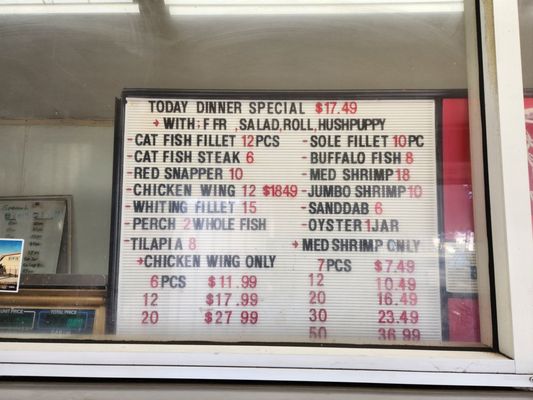 TODAY DINNER SPECIAL $17.49
→ WITH: F FR ,SALAD,ROLL,HUSHPUPPY
- CAT FISH FILLET 12PCS
- CAT FISH STEAK 6
- RED SNAPPER 10
- CHICKEN WING 12 $1849
- WHITING FILLET 15
- PERCH 2 WHOLE FISH
- TILAPIA 8
- SOLE FILLET 10PC
- BUFFALO FISH 8
- MED SHRIMP 18
- JUMBO SHRIMP 10
- SANDDAB 6
- OYSTER 1JAR
→ CHICKEN WING ONLY
6PCS $11.99
12 $17.99
20 $27 99
→ MED SHRIMP ONLY
7PCS $7.49
12 10.49
20 16.49
30 23.49
50 36 99
UNIT PRICE TOTAL PRICE